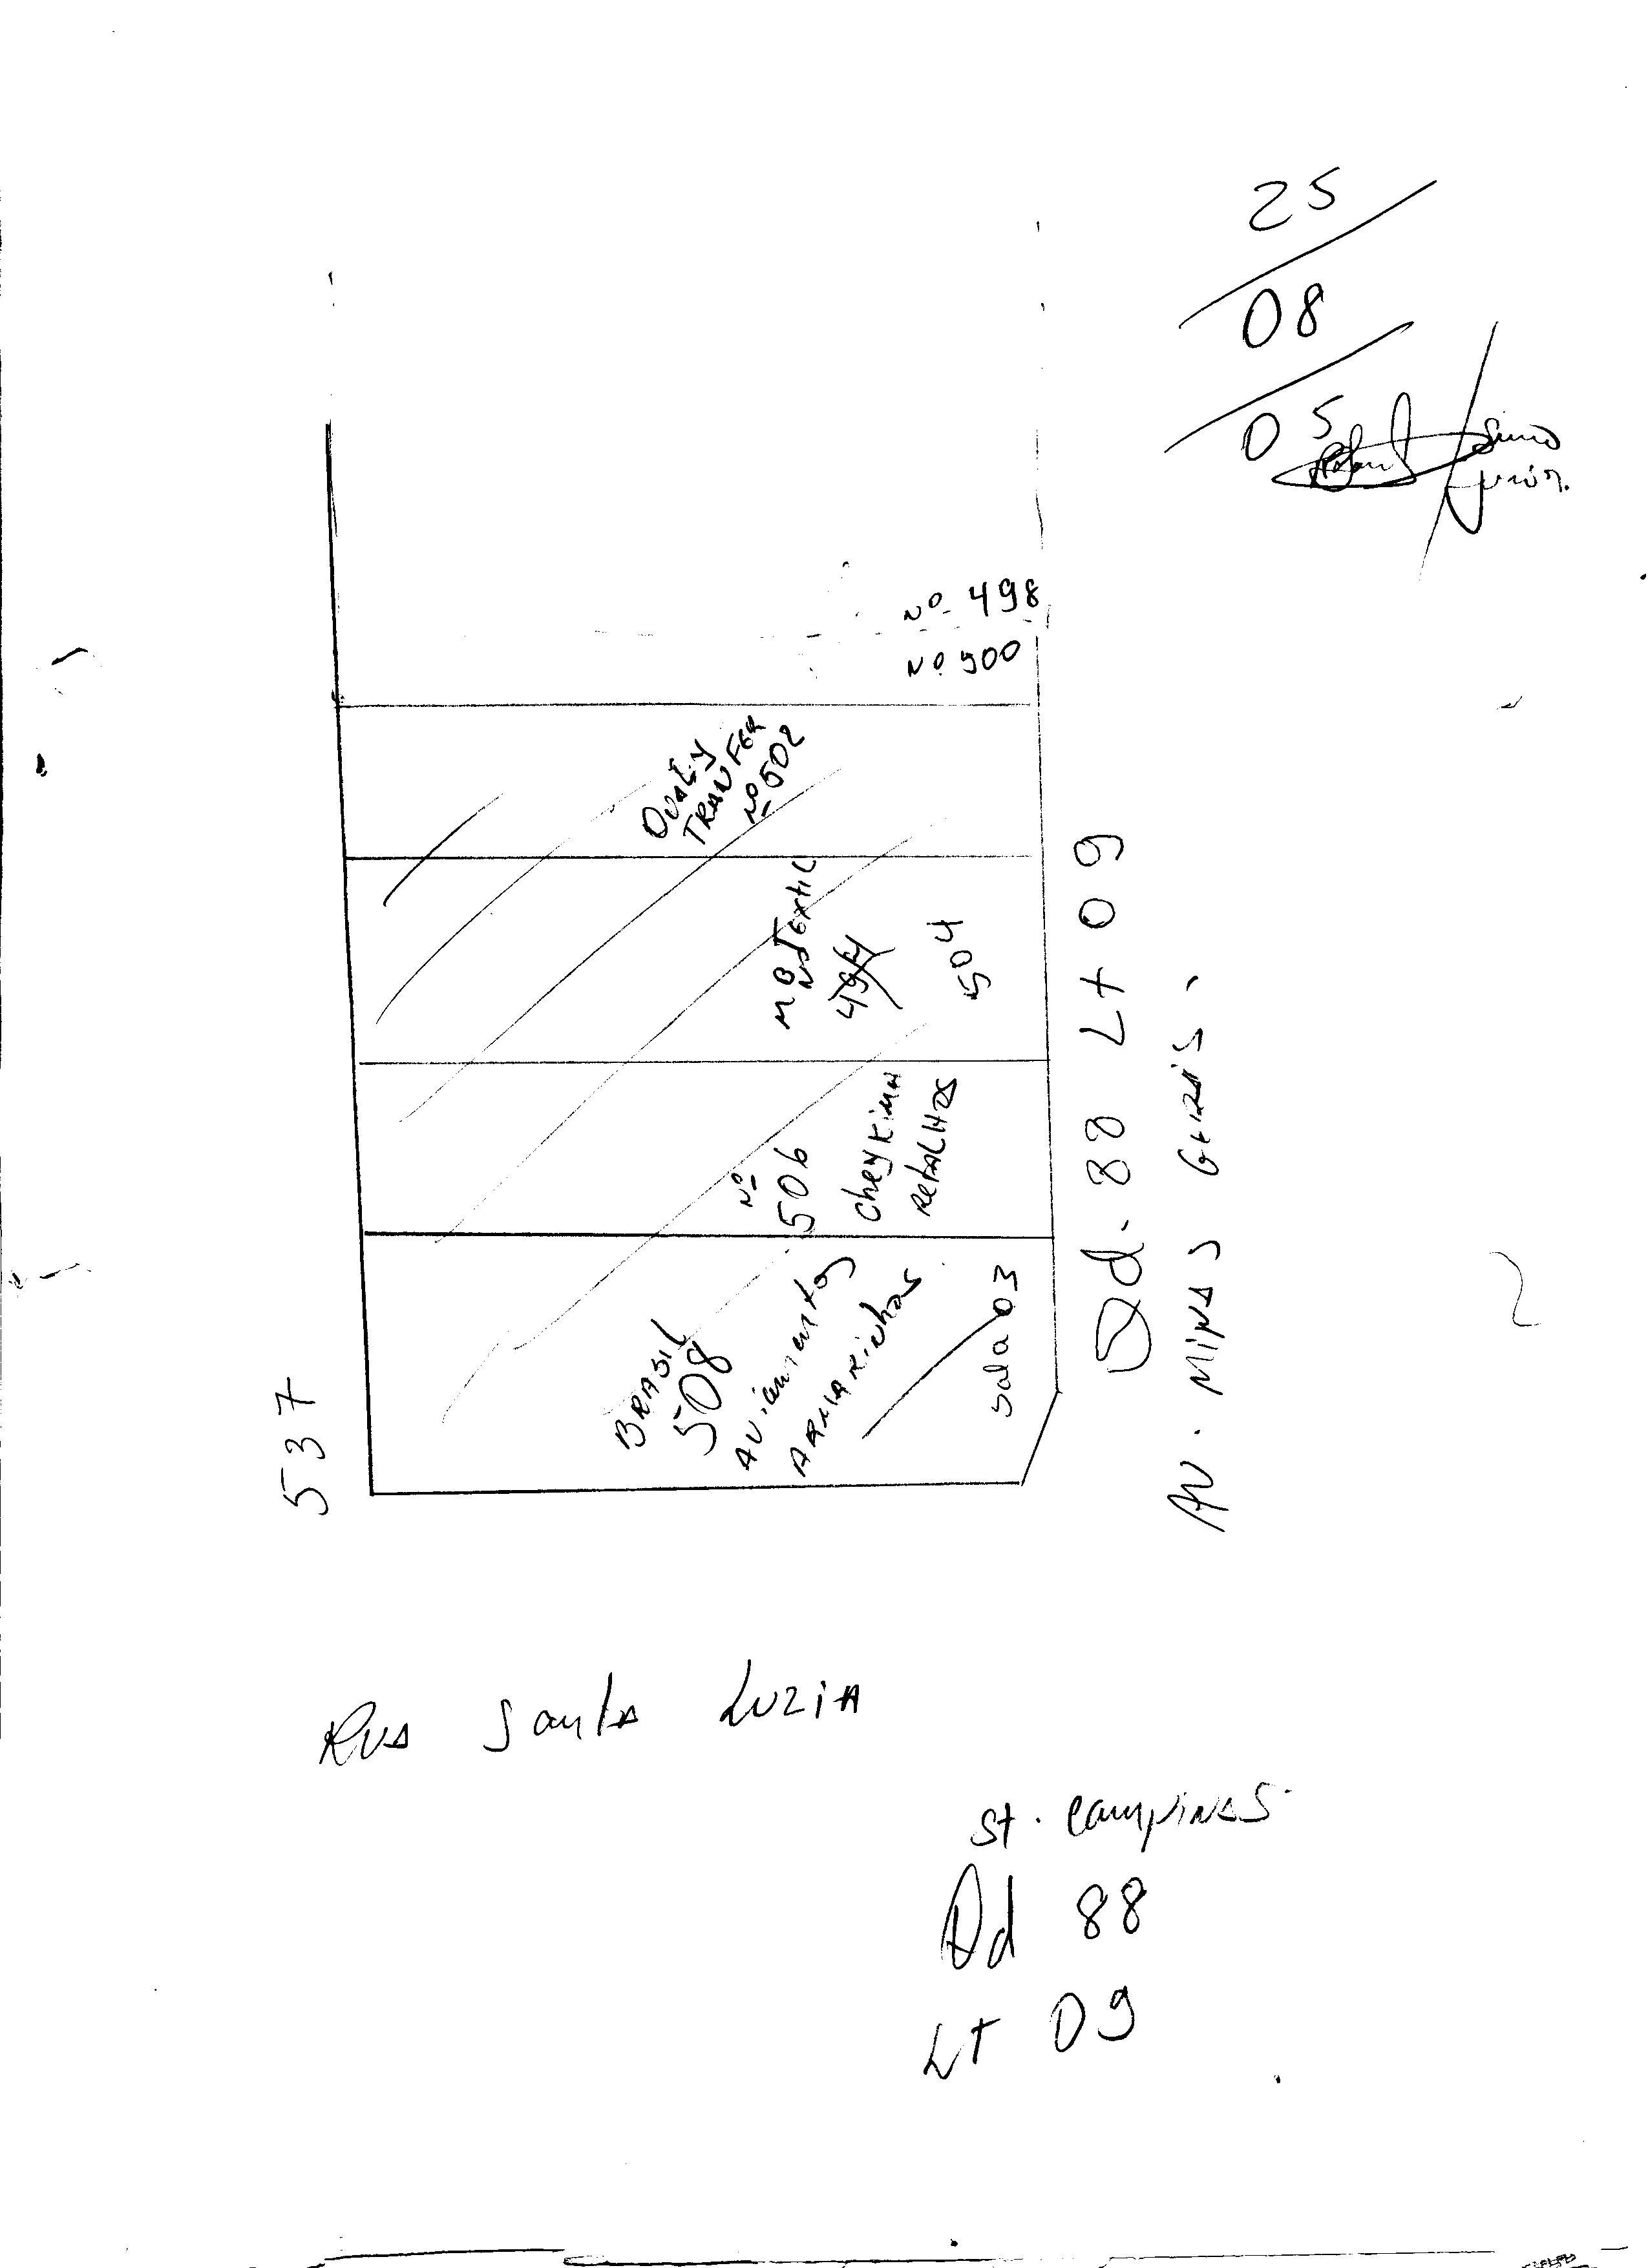 25
08
05
Nº 498
Nº 900
QUALY
TRANFER
Nº 502
MB Textil
Nº
504
Nº
506
Cheykinha
RetALHos
BRASIL
508
AViamentos
ARMARinhos
sala 03
537
Qd. 88 Lt 09
AV. MINAS GERAIS.
RUA Santa LUZIA
St. Campinas
Qd 88
Lt 09